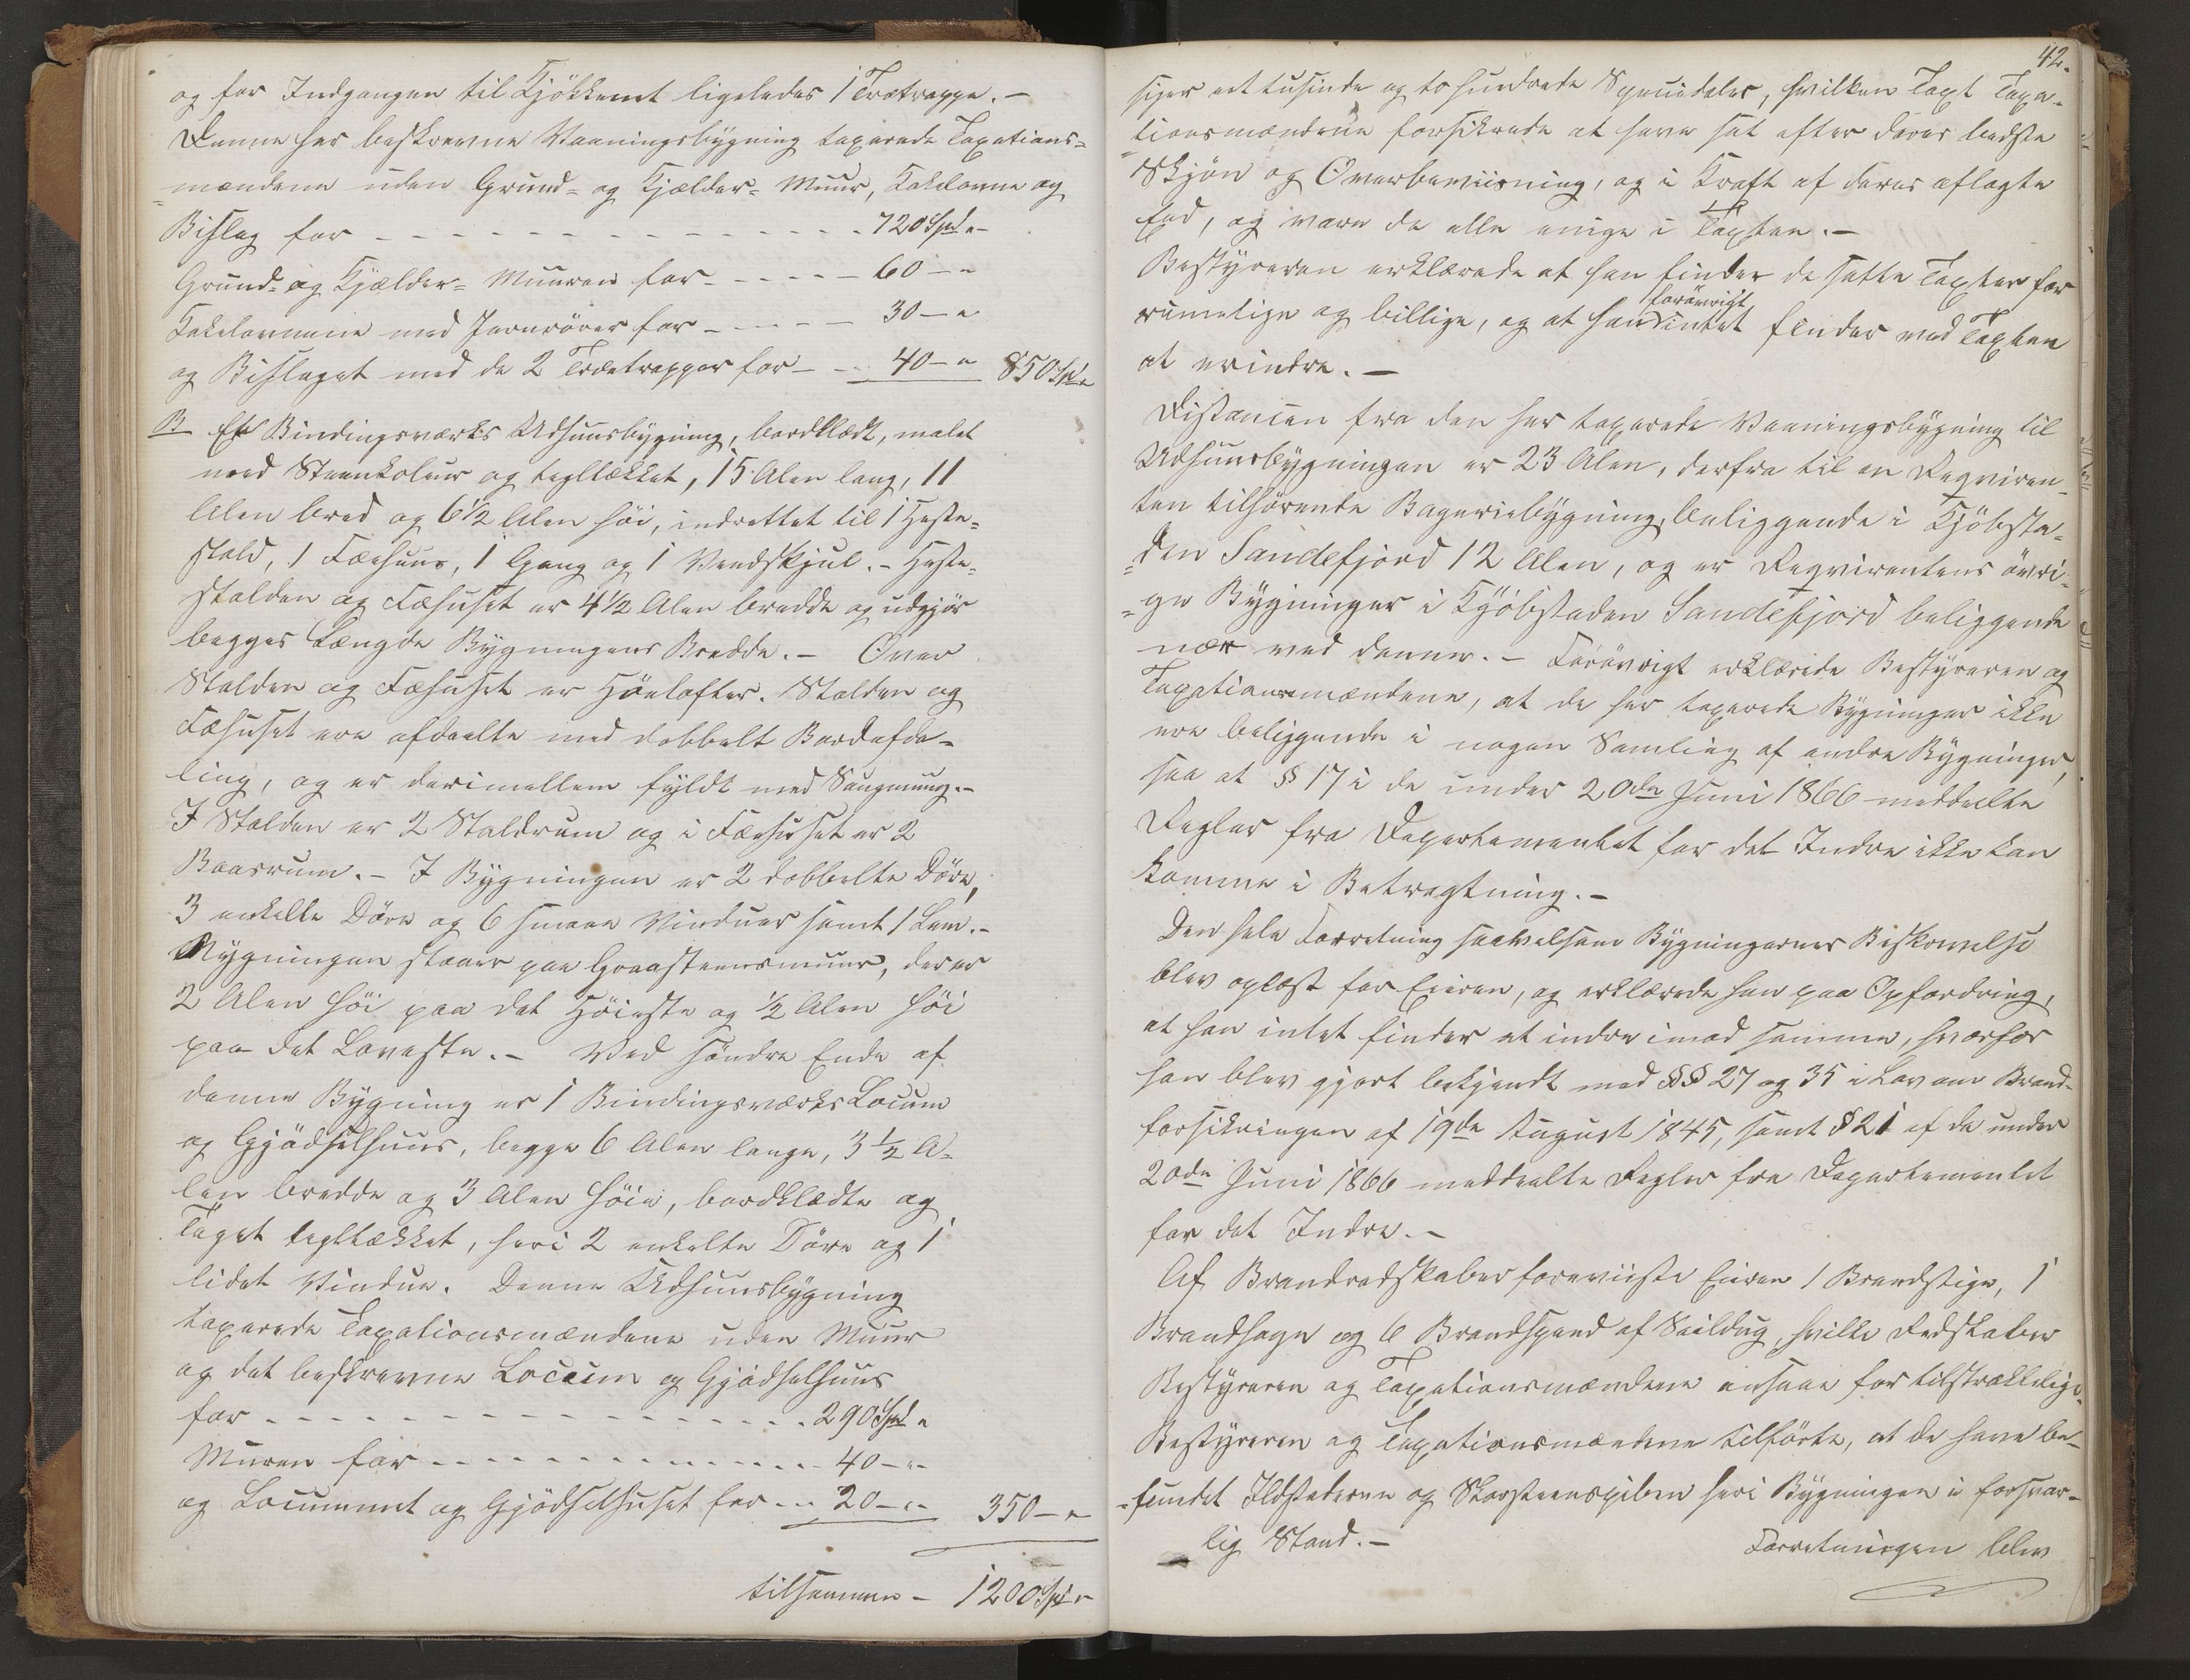 og for Indgangen til Kjökkenet ligeledes 1 Trætrappe.-
Denne her beskrevne Vaaningsbygning taxerede Taxations=
=mændene uden Grund= og Kjælder= Muur, Kakelovne og
Bislag for - - - - - - - - - - - - - - - 720 Spd "-
Grund= og Kjælder= Muuren for - - - - - 60 - "
Kakelovnene med Jernrörer for - - - - - 30 - "
og Bislaget med de 2 Trætrapper for - - - 40 - " 850 Spd "
B En Bindingsværks Udhuusbygning, bordklædt, malet
med Steenkoleur og tegltækket, 15 Alen lang, 11
Alen bred og 6 1/2 Alen höi, indrettet til 1 Heste=
stald, 1 Fæehuus, 1 Gang og 1 Vedskjul. - Heste=
stalden og Fæhuset er 4 1/2 Alen bredde og udgjör
begges Længde Bygningens Bredde. - Over
Stalden og Fæhuset er Höelofter. Stalden og
Fæhuset ere afdeelte med dobbelt Bordafde=
ling, og er derimellem fyldt med Saugmug.-
I Stalden er 2 Staldrum og i Fæehuset er 2
Baasrum. - I Bygningen er 2 dobbelte Döre,
3 enkelte Döre og 6 smaae Vinduer samt 1 Lem.-
Bygningen staaer paa Graasteensmuur, der er
2 Alen höi paa det Höieste og 1/2 Alen höi
paa det Laveste. - Ved söndre Ende af
denne Bygning er 1 Bindingsværks Locum
og Gjödselhuus, begge 6 Alen lange, 3 1/2 A=
len bredde og 3 Alen höie, bordklædte og
Taget tegltækket, heri 2 enkelte Döre og 1
lidet Vindue. Denne Udhuusbygning
taxerede Taxationsmændene uden Muur
og det beskrevne Locum og Gjödselhuus
for - - - - - - - - - - - - - - - 290 Spd "
Muren for - - - - - - - - - - - - - 40 - "-
og Locummet og Gjödselhuset for - - 20 - "- 350 - "
tilsammen - 1200 Spd "
42.
siger eet tusinde og to hundrede Speciedaler, hvilken Taxt Taxa=
=tionsmændene forsikrede at have sat efter deres bedste
Skjön og Overbeviisning, og i Kraft af deres aflagte
Eed, og vare de alle enige i Taxten.-
Bestyreren erklærede at han finder de satte Taxter for
rimelige og billige, og at han foröwrigt intet finder ved Taxten
at erindre.-
Distancen fra den her taxerede Vaaningsbygning til
Udhuusbygningen er 23 Alen, derfra til en Reqviren=
ten tilhörende Bageriebygning, beliggende i Kjöbsta=
=den Sandefjord 12 Alen, og er Reqvirentens övri=
=ge Bygninger i Kjöbstaden Sandefjord beliggende
nær ved denne. - Forövrigt erklærede Bestyreren og
Taxationsmændene, at de her taxerede Bygninger ikke
ere beliggende i nogen Samling af andre Bygninger,
saa at § 17 i de under 20de Juni 1866 meddeelte
Regler fra Departementet for det Indre ikke kan
komme i Betragtning.-
Den hele Forretning saavelsom Bygningernes Beskrivelse
blev oplæst for Eieren, og erklærede han paa Opfordring,
at han intet finder at indre imod samme, hvorfor
han blev gjort bekjendt med §§ 27 og 35 i Lov om Brand=
forsikringen af 19de August 1845, samt § 21 af de under
20de Juni 1866 meddeelte Regler fra Departementet
for det Indre.-
Af Brandredskaber foreviiste Eieren 1 Brandstige, 1
Brandhage og 6 Brandspand af Seildug, hvilke Redskaber
Bestyreren og Taxationsmændene ansaae for tilstrækkelige.
Bestyreren og Taxationsmændene tilförte, at de have be=
=fundet Ildstederne og Skorsteenspiben heri Bygningen i forsvar=
lig Stand.-
Forretningen blev